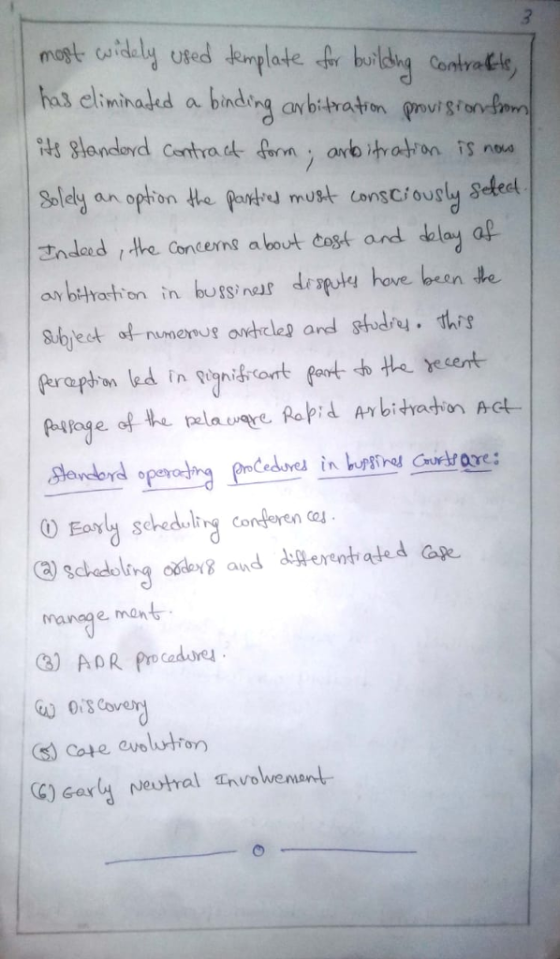 3
most widely used template for building contracts,
has eliminated a binding arbitration provision from
its standard contract form; arbitration is now
Solely an option the parties must consciously select.
Indeed, the concerns about cost and delay of
arbitration in bussiness disputes have been the
subject of numerous articles and studies. This
perception led in significant part to the recent
passage of the Delaware Rapid Arbitration Act
Standard operating procedures in bussines Courts are:
(1) Early scheduling conferences.
(2) scheduling orders and differentiated case
management.
(3) ADR procedures.
(4) Discovery
(5) Case evolution
(6) Early Neutral Involvement